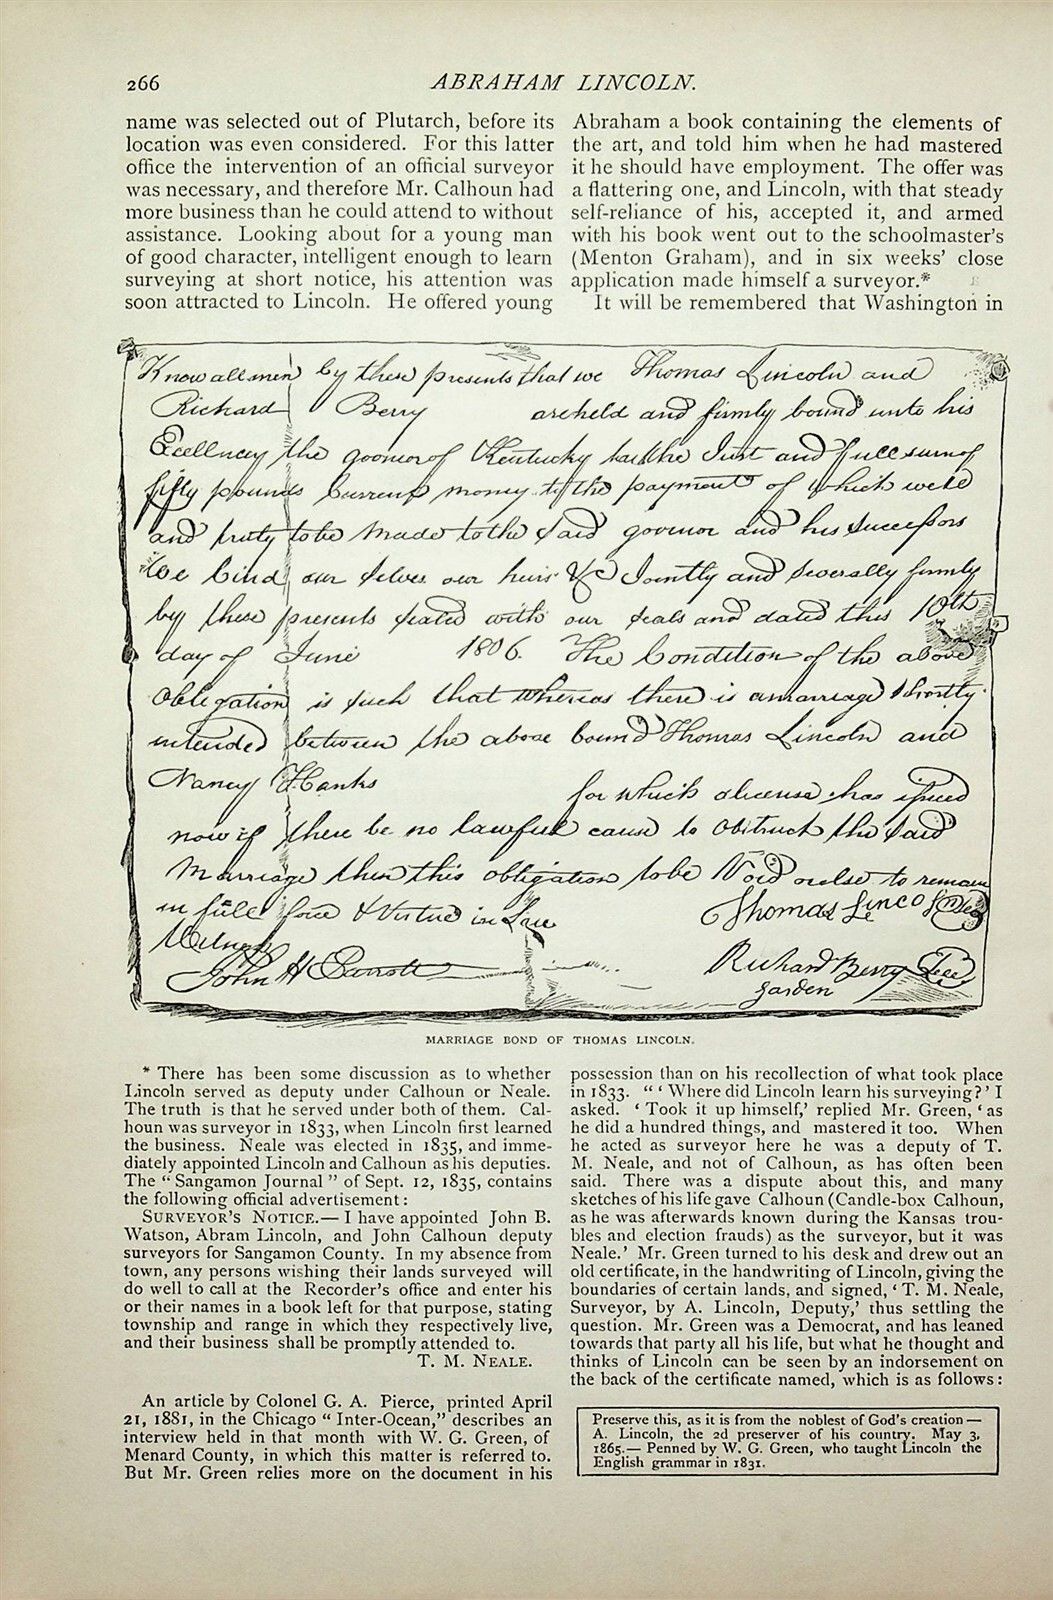 266
ABRAHAM LINCOLN.
name was selected out of Plutarch, before its
location was even considered. For this latter
office the intervention of an official surveyor
was necessary, and therefore Mr. Calhoun had
more business than he could attend to without
assistance. Looking about for a young man
of good character, intelligent enough to learn
surveying at short notice, his attention was
soon attracted to Lincoln. He offered young
Abraham a book containing the elements of
the art, and told him when he had mastered
it he should have employment. The offer was
a flattering one, and Lincoln, with that steady
self-reliance of his, accepted it, and armed
with his book went out to the schoolmaster's
(Menton Graham), and in six weeks' close
application made himself a surveyor.*
It will be remembered that Washington in
Know all men by these presents that we Thomas Lincoln and
Richard Berry are held and firmly bound unto his
Excellency the governor of Kentucky the Just and full sum of
fifty pounds Current money to the payment of which well
and truly to be made to the Said govenor and his Successors
We bind our Selves our heirs &c Jointly and Severally firmly
by these presents sealed with our seals and dated this 10th
day of June 1806. The Condition of the above
Obligation is such that whereas there is a marriage Shortly
intended between the above bound Thomas Lincoln and
Nancy Hanks for which a license has issued
now if there be no lawful cause to obstruct the Said
Marriage then this obligation to be Void or else to remain
in full force & Virtue in Law
Thomas Lincoln
John H Parrott
Richard Berry
garden
MARRIAGE BOND OF THOMAS LINCOLN.
* There has been some discussion as to whether
Lincoln served as deputy under Calhoun or Neale.
The truth is that he served under both of them. Cal-
houn was surveyor in 1833, when Lincoln first learned
the business. Neale was elected in 1835, and imme-
diately appointed Lincoln and Calhoun as his deputies.
The "Sangamon Journal" of Sept. 12, 1835, contains
the following official advertisement:
SURVEYOR'S NOTICE.—I have appointed John B.
Watson, Abram Lincoln, and John Calhoun deputy
surveyors for Sangamon County. In my absence from
town, any persons wishing their lands surveyed will
do well to call at the Recorder's office and enter his
or their names in a book left for that purpose, stating
township and range in which they respectively live,
and their business shall be promptly attended to.
T. M. NEALE.
An article by Colonel G. A. Pierce, printed April
21, 1881, in the Chicago "Inter-Ocean," describes an
interview held in that month with W. G. Green, of
Menard County, in which this matter is referred to.
But Mr. Green relies more on the document in his
possession than on his recollection of what took place
in 1833. "'Where did Lincoln learn his surveying?' I
asked. 'Took it up himself,' replied Mr. Green, 'as
he did a hundred things, and mastered it too. When
he acted as surveyor here he was a deputy of T.
M. Neale, and not of Calhoun, as has often been
said. There was a dispute about this, and many
sketches of his life gave Calhoun (Candle-box Calhoun,
as he was afterwards known during the Kansas trou-
bles and election frauds) as the surveyor, but it was
Neale.' Mr. Green turned to his desk and drew out an
old certificate, in the handwriting of Lincoln, giving the
boundaries of certain lands, and signed, 'T. M. Neale,
Surveyor, by A. Lincoln, Deputy,' thus settling the
question. Mr. Green was a Democrat, and has leaned
towards that party all his life, but what he thought and
thinks of Lincoln can be seen by an indorsement on
the back of the certificate named, which is as follows:
Preserve this, as it is from the noblest of God's creation—
A. Lincoln, the 2d preserver of his country. May 3,
1865.—Penned by W. G. Green, who taught Lincoln the
English grammar in 1831.